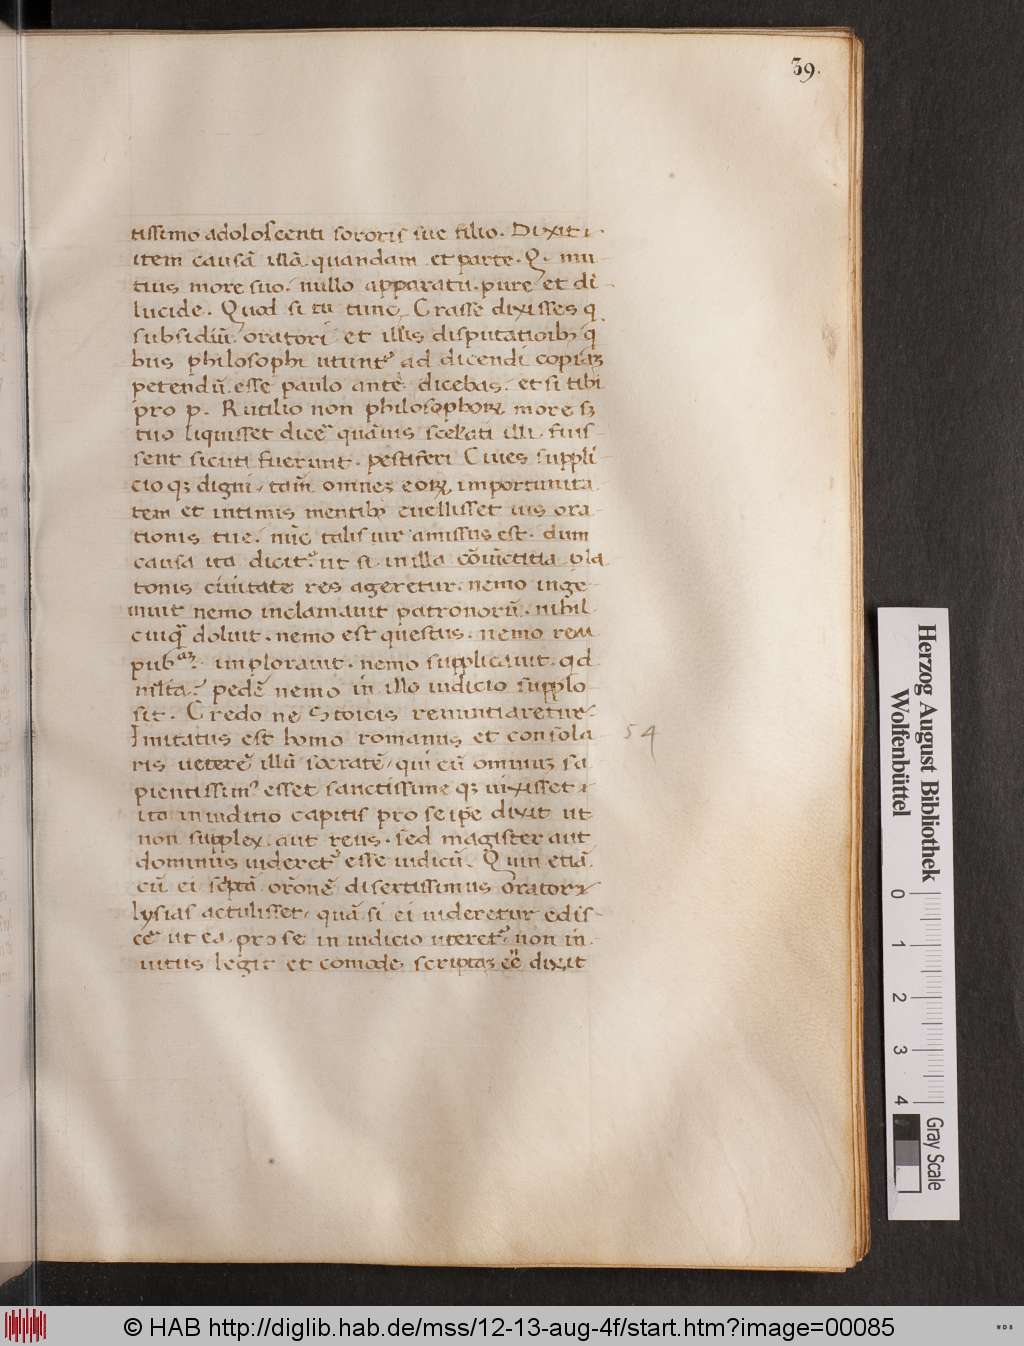 39.
tissimo adoloscenti sororis sue filio. Dixit i
item causā illā quandam et parte. Q. mu
tius more suo. nullo apparatu. pure et di
lucide. Quod si tu tunc Crasse dixisses q
subsidiū oratori et illis disputatioibꝫ q̄
bus philosophi utunt᷒ ad dicendi copiaꝫ
petendū esse paulo ante dicebas. et si tibi
pro p. Rutilio non philosophoꝝ more sꝫ
tuo liquisset dice᷒ quāuis scelꝛati illi fuis-
sent sicuti fuerunt. pestiferi Ciues suppli
cio qꝫ digni, tam̄ omneꝫ eoꝝ importunita
tem et intimis mentibꝫ euellisset uis ora
tionis tue. nūc talis uir amissus est. dum
causa ita dicit᷒ ut si in illa cōmētitia pla
tonis ciuitate res ageretur. nemo inge-
muit nemo inclamauit patronorū. nihil
cuiq̄ doluit. nemo est questus. nemo rem
pubᵃꝫ. implorauit. nemo supplicauit. qd
pedē nemo in illo iudicio supplo
sit. Credo ne Stoicis renuntiaretur.
Imitatus est homo romanus et consola
ris ueterē illū socratē, qui cū omniuꝫ sa
pientissim᷒ esset sanctissime qꝫ uixisset
ita in iuditio capitis pro se ip̄e dixit ut
non supplex aut reus. sed magister aut
dominus uideret᷒ esse iudicū. Quin etiā
cū ei sc̄ptā or̄onē disertissimus orator
lysias actulisset, quā si ei uideretur edis-
ce᷒ ut ea pro se in iudicio uteret᷒ non in
uitus legit et comode scriptaꝫ eē dixit
54
Herzog August Bibliothek
Wolfenbüttel
0 1 2 3 4
Gray Scale
© HAB http://diglib.hab.de/mss/12-13-aug-4f/start.htm?image=00085